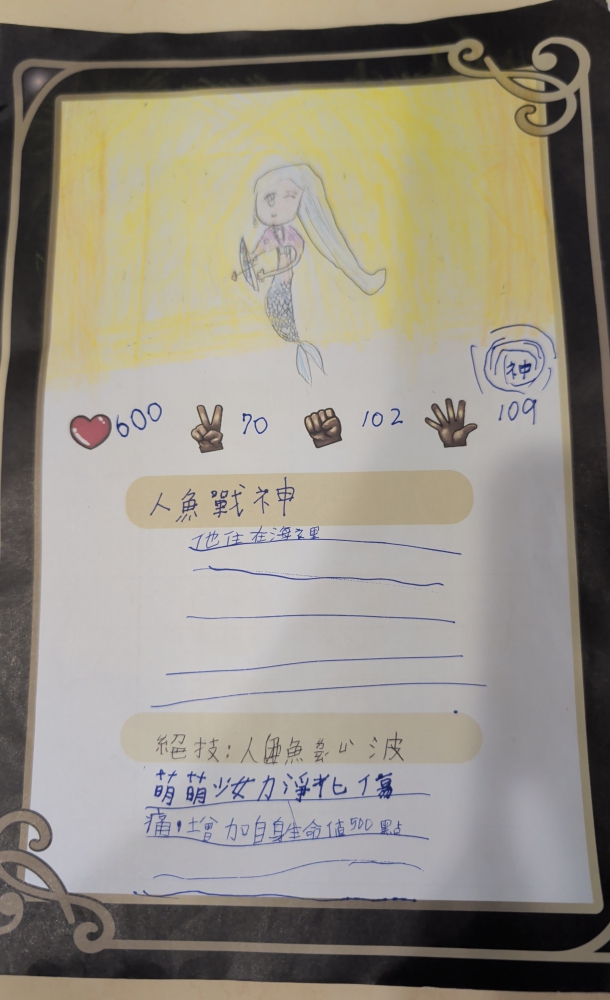 神
600 70 102 109
人魚戰神
他住在海裡
絕技:人魚 心波
萌萌少女力淨化傷
痛,增加自身生命值500點